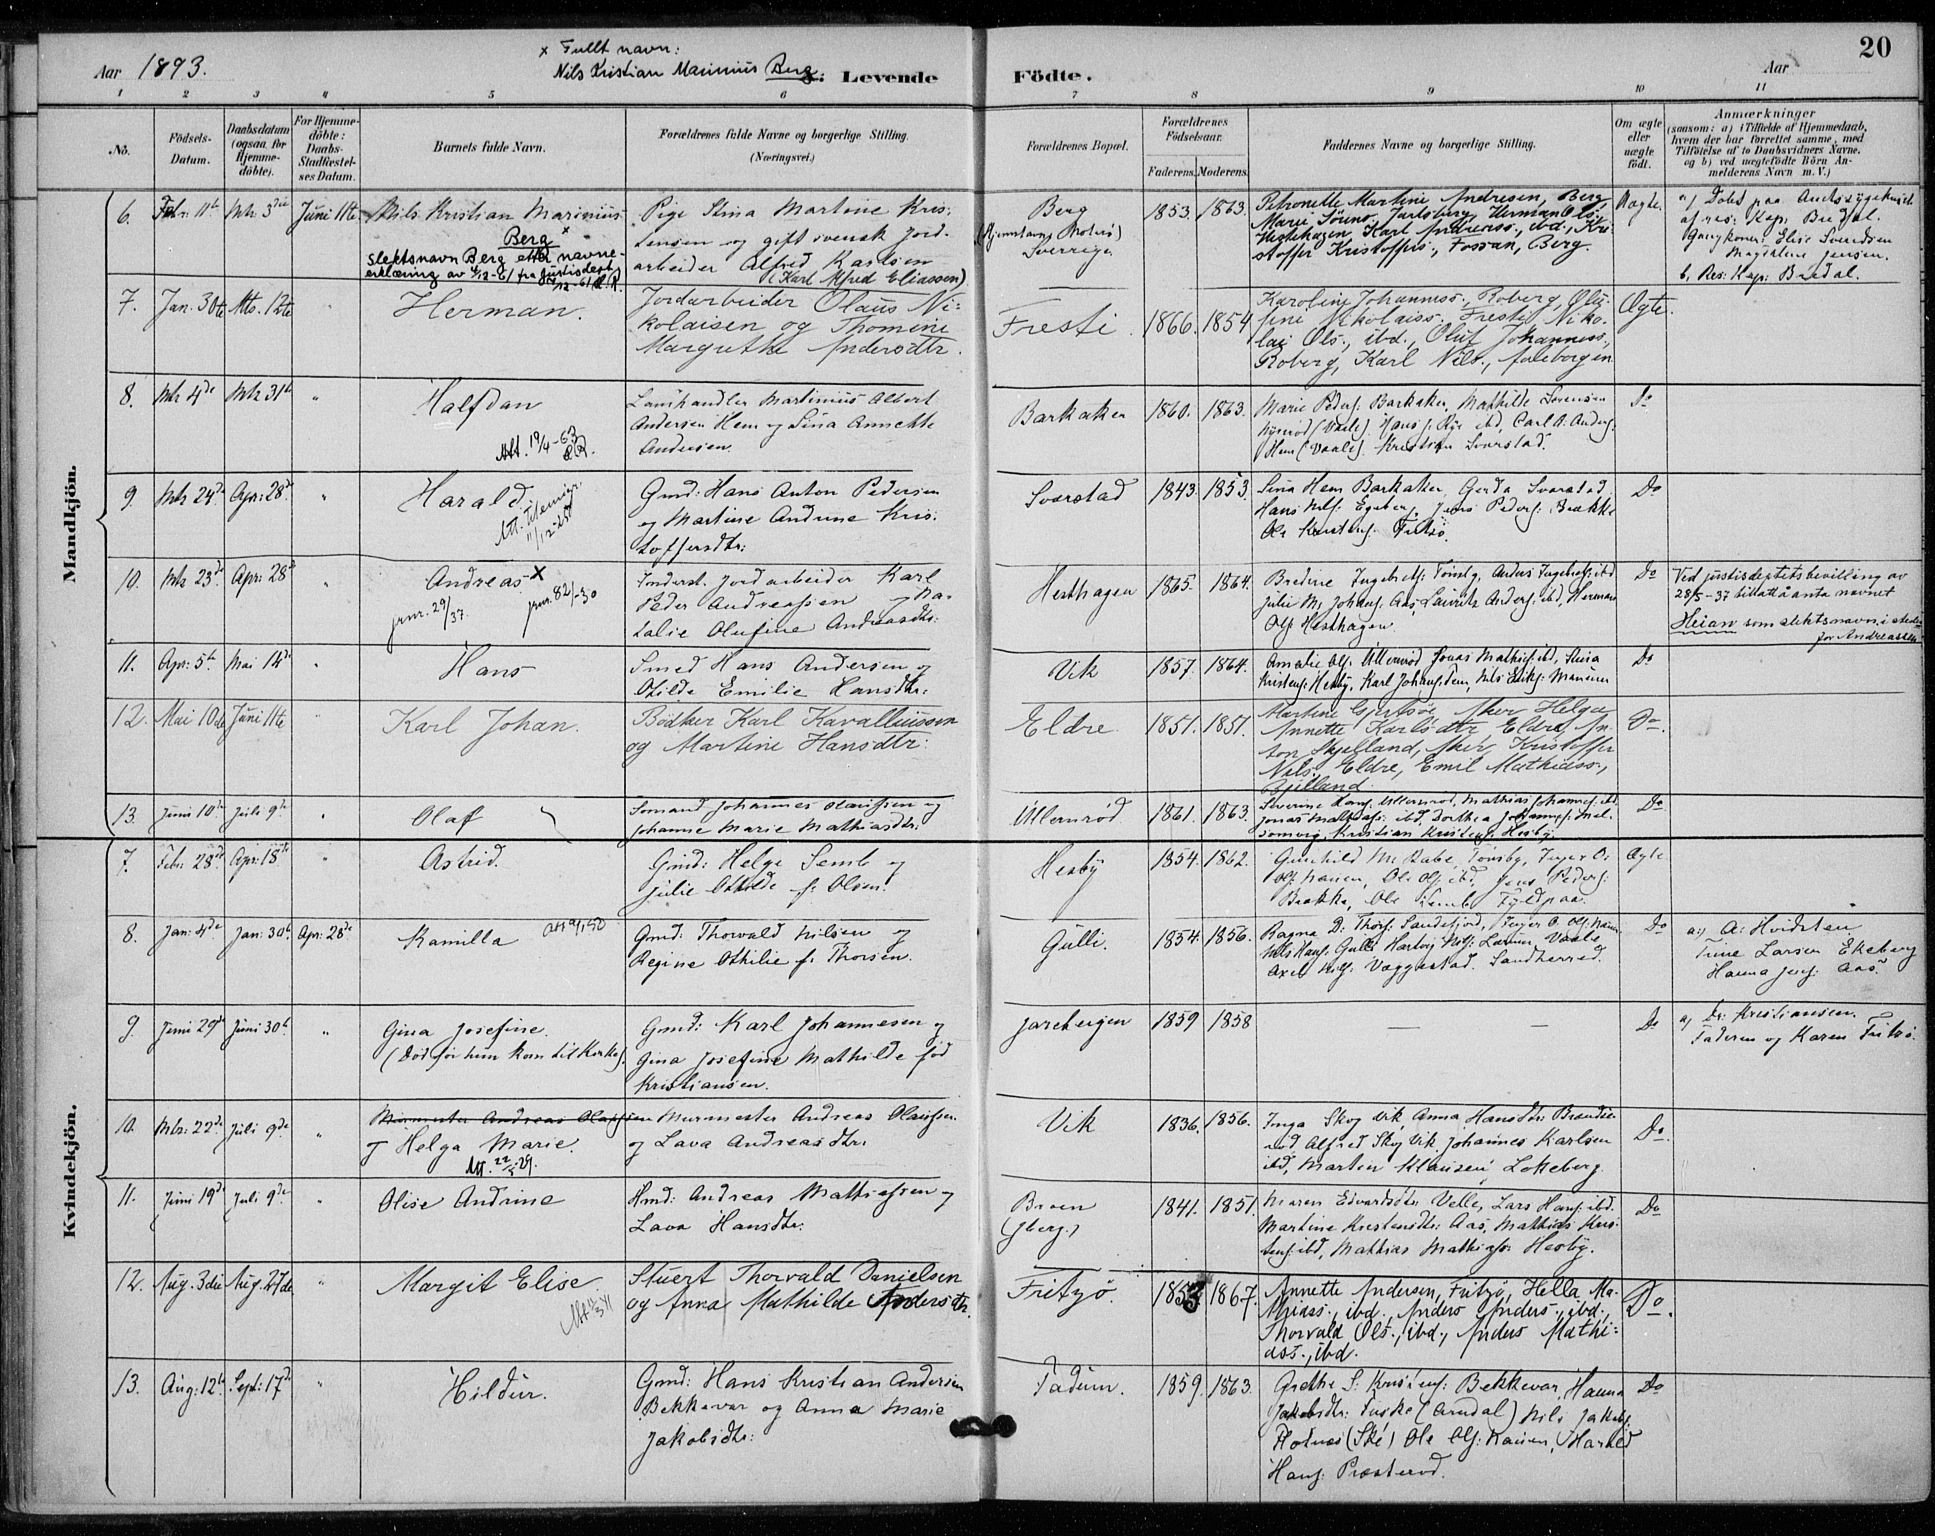 20
x Fullt navn:
Nils Kristian Marinius Berg.
Aar 1893. Levende Födte. Aar
1 2 3 4 5 6 7 8 9 10 11
No.
Födsels-Datum.
Daabsdatum (ogsaa for Hjemme-döbte).
For Hjemme-döbte: Daabs-Stadfæstel-ses Datum.
Barnets fulde Navn.
Forældrenes fulde Navne og borgerlige Stilling.
(Næringsvei.)
Forældrenes Bopæl.
Forældrenes Födselsaar.
Faderens. Moderens.
Faddernes Navne og borgerlige Stilling.
Om ægte eller uægte født.
Anmærkninger
(saasom: a) i Tilfælde af Hjemmedaab,
hvem der har forrettet samme, med
Tilföielse af to Daabsvidners Navne,
og b) ved uægtefödte Börn An-
melderens Navn m. V.)
Mandkjön.
6. Febr: 11te Mts 3die Juni 11te Nils Kristian Marinius
Berg x
slektsnavn Berg etter navne-
erklæring av 4/12-61 fra justisdept
Pige Stina Martine Kris-
tensen og gift svensk jord-
arbeider Alfred Karlsen
(Karl Alfred Eliassen)
Berg
Sverrige
1853. 1863.
Petronelle Martine Andresen, Berg
Marie Sörens., Jarlsberg, Herman Ols.,
Hesthagen, Karl Anderss., ibd., Kri-
stoffer Kristoffers., Fossan, Berg.
Uægte.
a) Döbt paa Amtssygehuset
af res: Kap: Bredal.
Gangkoner: Elise Svendsen
Magdalene Jensen.
b, Res: Kap: Bredal.
7. Jan. 30te Mts. 12te Herman.
Jordarbeider Olaus Ni-
kolaisen og Thomine
Margrethe Andersdtr.
Fresti 1866. 1854
Karoline Johanness., Roberg, Olu-
fine Nikolaiss., Fresti, Niko-
lai Ols., ibd., Oluf Johanness.,
Roberg, Karl Nils., Auleborgen
Ægte.
8. Mts 4de Mts 31te " Halfdan
Att. 19/4-63
Landhandler Martinius Albert
Andersen Hem og Lina Annette
Andersen.
Barkaker 1860. 1863.
Marie Peders: Barkaker, Mathilde Sörensen
(Vaale) Hans ibd, Carl A: Anders:
Hem (Vaale) Kristian Svarstad.
Do
9. Mts 24de Apr: 28de " Harald.
11/12-
Gmd: Hans Anton Pedersen
og Martine Andrine Kris-
toffersdtr:
Svarstad 1843. 1853.
Lina Hem Barkaker, Gerda Svarstad,
Hans Nils: Egeberg, Jens Peders: Brække
Ole Kristens: Fritsö.
Do
10. Mts 23de Apr: 28de " Andreas x
jrnr. 29/37. jrnr. 82/-30
Inderst. Jordarbeider Karl
Peder Andreassen og Na-
talie Olufine Andreasdtr:
Hesthagen 1865. 1864.
Bredine Ingebrets: Tönsbg, Anders Ingebrets: ibd
Julie M. Johans: Aas, Lauritz Anders: ibd, Herman
Ols: Hesthagen
Do
Ved justisdeptets bevilling av
28/5-37 tillatt å anta navnet
Heian som slektsnavn i stedet
for Andreassen.
11. Apr: 5te Mai 14de " Hans
Smed Hans Andersen og
Otilde Emilie Hansdtr:
Vik 1857. 1864.
Amalie Ols: Ullernrød, Jonas Mathis: ibd, Stina
Kristens: Hesby, Karl Johans: Jem, Nils Eriks:
Do
12. Mai 10de Juni 11te Karl Johan.
Bødker Karl Kavalliussen
og Martine Hansdtr:
Eldre 1851. 1851.
Martine Gjertsöe, Aker, Helga
Annette Karlsdtr, Eldre, An-
ton Skjelland, Aker, Kristoffer
Nils., Eldre, Emil Mathiass.,
Bjelland
Do.
13. Juni 10de Juli 9de " Olaf
Sömand Johannes Olaussen og
Johanne Marie Mathiasdtr:
Ullernröd 1861. 1863.
Severine Hans: Ullernröd, Mathias Johannes: ibd
Jonas Mathias: ibd, Dorthea Johannes: Mel-
somvig, Kristian Kristens: Hesby.
Do
Kvindekjön.
7. Febr: 28de Apr: 18de " Astrid.
Gmd: Helge Semb og
Julie Othilde f: Olsen.
Hesby 1854. 1862.
Gunhild M. Rabe, Tönsbg, Jeger O:
Ols: Nauen, Ole Ols: ibd, Jens Peders:
Brække, Ole Semb Fyldpaa.
Ægte
8. Jan: 4de Jan: 30te Apr: 28de Kamilla
Gmd: Thorvald Nilsen og
Regine Othilie f. Thorsen.
Gulli. 1854. 1856.
Ragna D. Thors: Sandefjord, Jeger O. Ols: Nauen
Nils Hans: Gulli, Hartvig Nils: Vaale
Axel Nils: Væggestad. Sandherred.
Do
a) A: Hvidsten
Trine Larsen Ekeberg
Hanna Jens: Aas.
9. Juni 29de Juni 30te " Gina Josefine.
(Död før hun kom til Kirke).
Gmd: Karl Johannesen og
Gina Josefine Mathilde fød
Kristiansen.
Jareberger 1859 1858 — — Do
a) Dr: Kristiansen.
Faderen og Karen Fritsö.
10. Mts: 22de Juli 9de " Murmester Andreas Olaussen
Helga Marie.
Att. 22/5 29.
Murmester Andreas Olaussen
og Lava Andreasdtr:
Vik 1836. 1856.
Inga Skog Vik, Anna Hansdtr: Brands-
röd, Alfred Skog Vik, Johannes Karlsen
ibd, Marten Klausen, Lökeberg
Do.
11. Juni 19de Juli 9de " Olise Andrine
Hmd: Andreas Mathiassen og
Lava Hansdtr:
Broen
(Jberg.)
1841. 1851.
Maren Edvardsdtr: Velle, Lars Hans: ibd.
Martine Kristensdtr: Aas, Mathias Kris-
tens: ibd, Mathias Mathiass: Hesby.
Do
12. Aug. 3die Aug. 27de " Margit Elise
Stuert Thorvald Danielsen
og Anna Mathilde Andersdtr.
Fritzö. 1853 1867.
Annette Andersen, Fritzö, Hella Ma-
thiass., ibd., Anders Anders., ibd.,
Thorvald Ols., ibd., Anders Mathi-
ass., ibd.
Do.
13. Aug: 12te Sept: 17de " Hildur.
Gmd: Hans Kristian Andersen
Bekkevar og Anna Marie
Jakobsdtr:
Fadum. 1859. 1863.
Grethe S: Kristens: Bekkevar, Hanna
Jakobsdtr: Fuske (Arndal) Nils Jakobs:
(Ske) Ole Ols: Nauen, Harald
Hans: Præsteröd.
Do